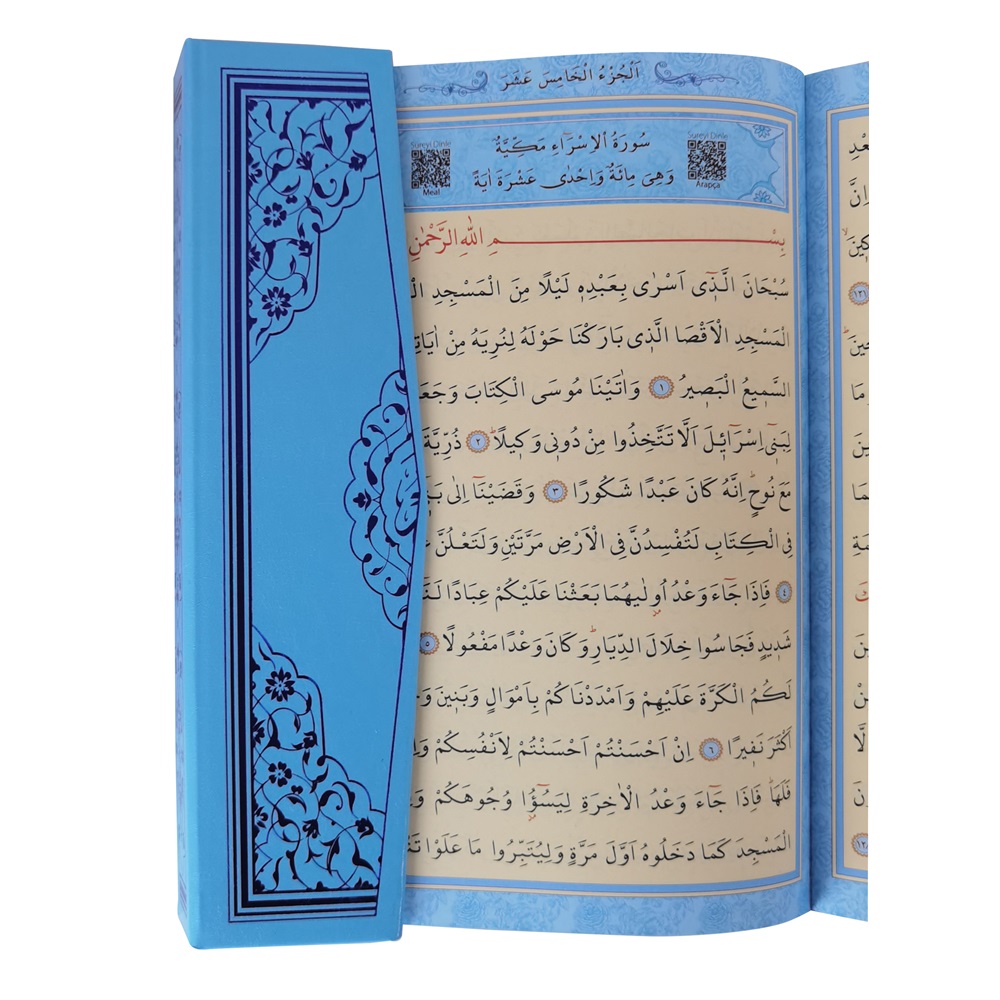 اَلْجُزْءُ الْخَامِسَ عَشَرَ
Sureyi Dinle
Meal
سُورَةُ الْاِسْرَٓاءِ مَكِّيَّةٌ
وَهِيَ مِائَةٌ وَاِحْدٰى عَشْرَةَ اٰيَةً
Sureyi Dinle
Arapça
بِسْمِ اللّٰهِ الرَّحْمٰنِ
سُبْحَانَ الَّذ۪ٓي اَسْرٰى بِعَبْدِه۪ لَيْلًا مِنَ الْمَسْجِدِ
الْمَسْجِدِ الْاَقْصَا الَّذ۪ي بَارَكْنَا حَوْلَهُ لِنُرِيَهُ مِنْ
السَّم۪يعُ الْبَص۪يرُ ١ وَاٰتَيْنَا مُوسَى الْكِتَابَ
لِبَن۪ٓي اِسْرَٓائ۪لَ اَلَّا تَتَّخِذُوا مِنْ دُون۪ي وَك۪يلًاۜ ٢ ذُرِّيَّةَ
مَعَ نُوحٍۜ اِنَّهُ كَانَ عَبْدًا شَكُورًا ٣ وَقَضَيْنَٓا اِلٰى
فِي الْكِتَابِ لَتُفْسِدُنَّ فِي الْاَرْضِ مَرَّتَيْنِ وَلَتَعْلُنَّ
٤ فَاِذَا جَٓاءَ وَعْدُ اُو۫لٰيهُمَا بَعَثْنَا عَلَيْكُمْ عِبَادًا
شَد۪يدٍ فَجَاسُوا خِلَالَ الدِّيَارِۜ وَكَانَ وَعْدًا مَفْعُولًا ٥
لَكُمُ الْكَرَّةَ عَلَيْهِمْ وَاَمْدَدْنَاكُمْ بِاَمْوَالٍ وَبَن۪ينَ
اَكْثَرَ نَف۪يرًا ٦ اِنْ اَحْسَنْتُمْ اَحْسَنْتُمْ لِاَنْفُسِكُمْ
فَلَهَاۜ فَاِذَا جَٓاءَ وَعْدُ الْاٰخِرَةِ لِيَسُٓؤُ۫ا وُجُوهَكُمْ
الْمَسْجِدَ كَمَا دَخَلُوهُ اَوَّلَ مَرَّةٍ وَلِيُتَبِّرُوا مَا عَلَوْا